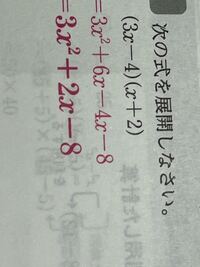 次の式を展開しなさい。
(3x−4)(x+2)
=3x²+6x−4x−8
=3x²+2x−8